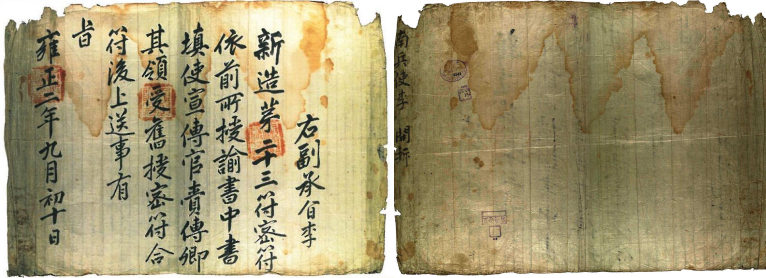 右副承旨李
新造苐二十三符密符
依前所授諭書中書
填使宣傳官賫傳卿
其領受舊授密符合
符後上送事有
旨
雍正二年九月初十日
南兵使李 開拆